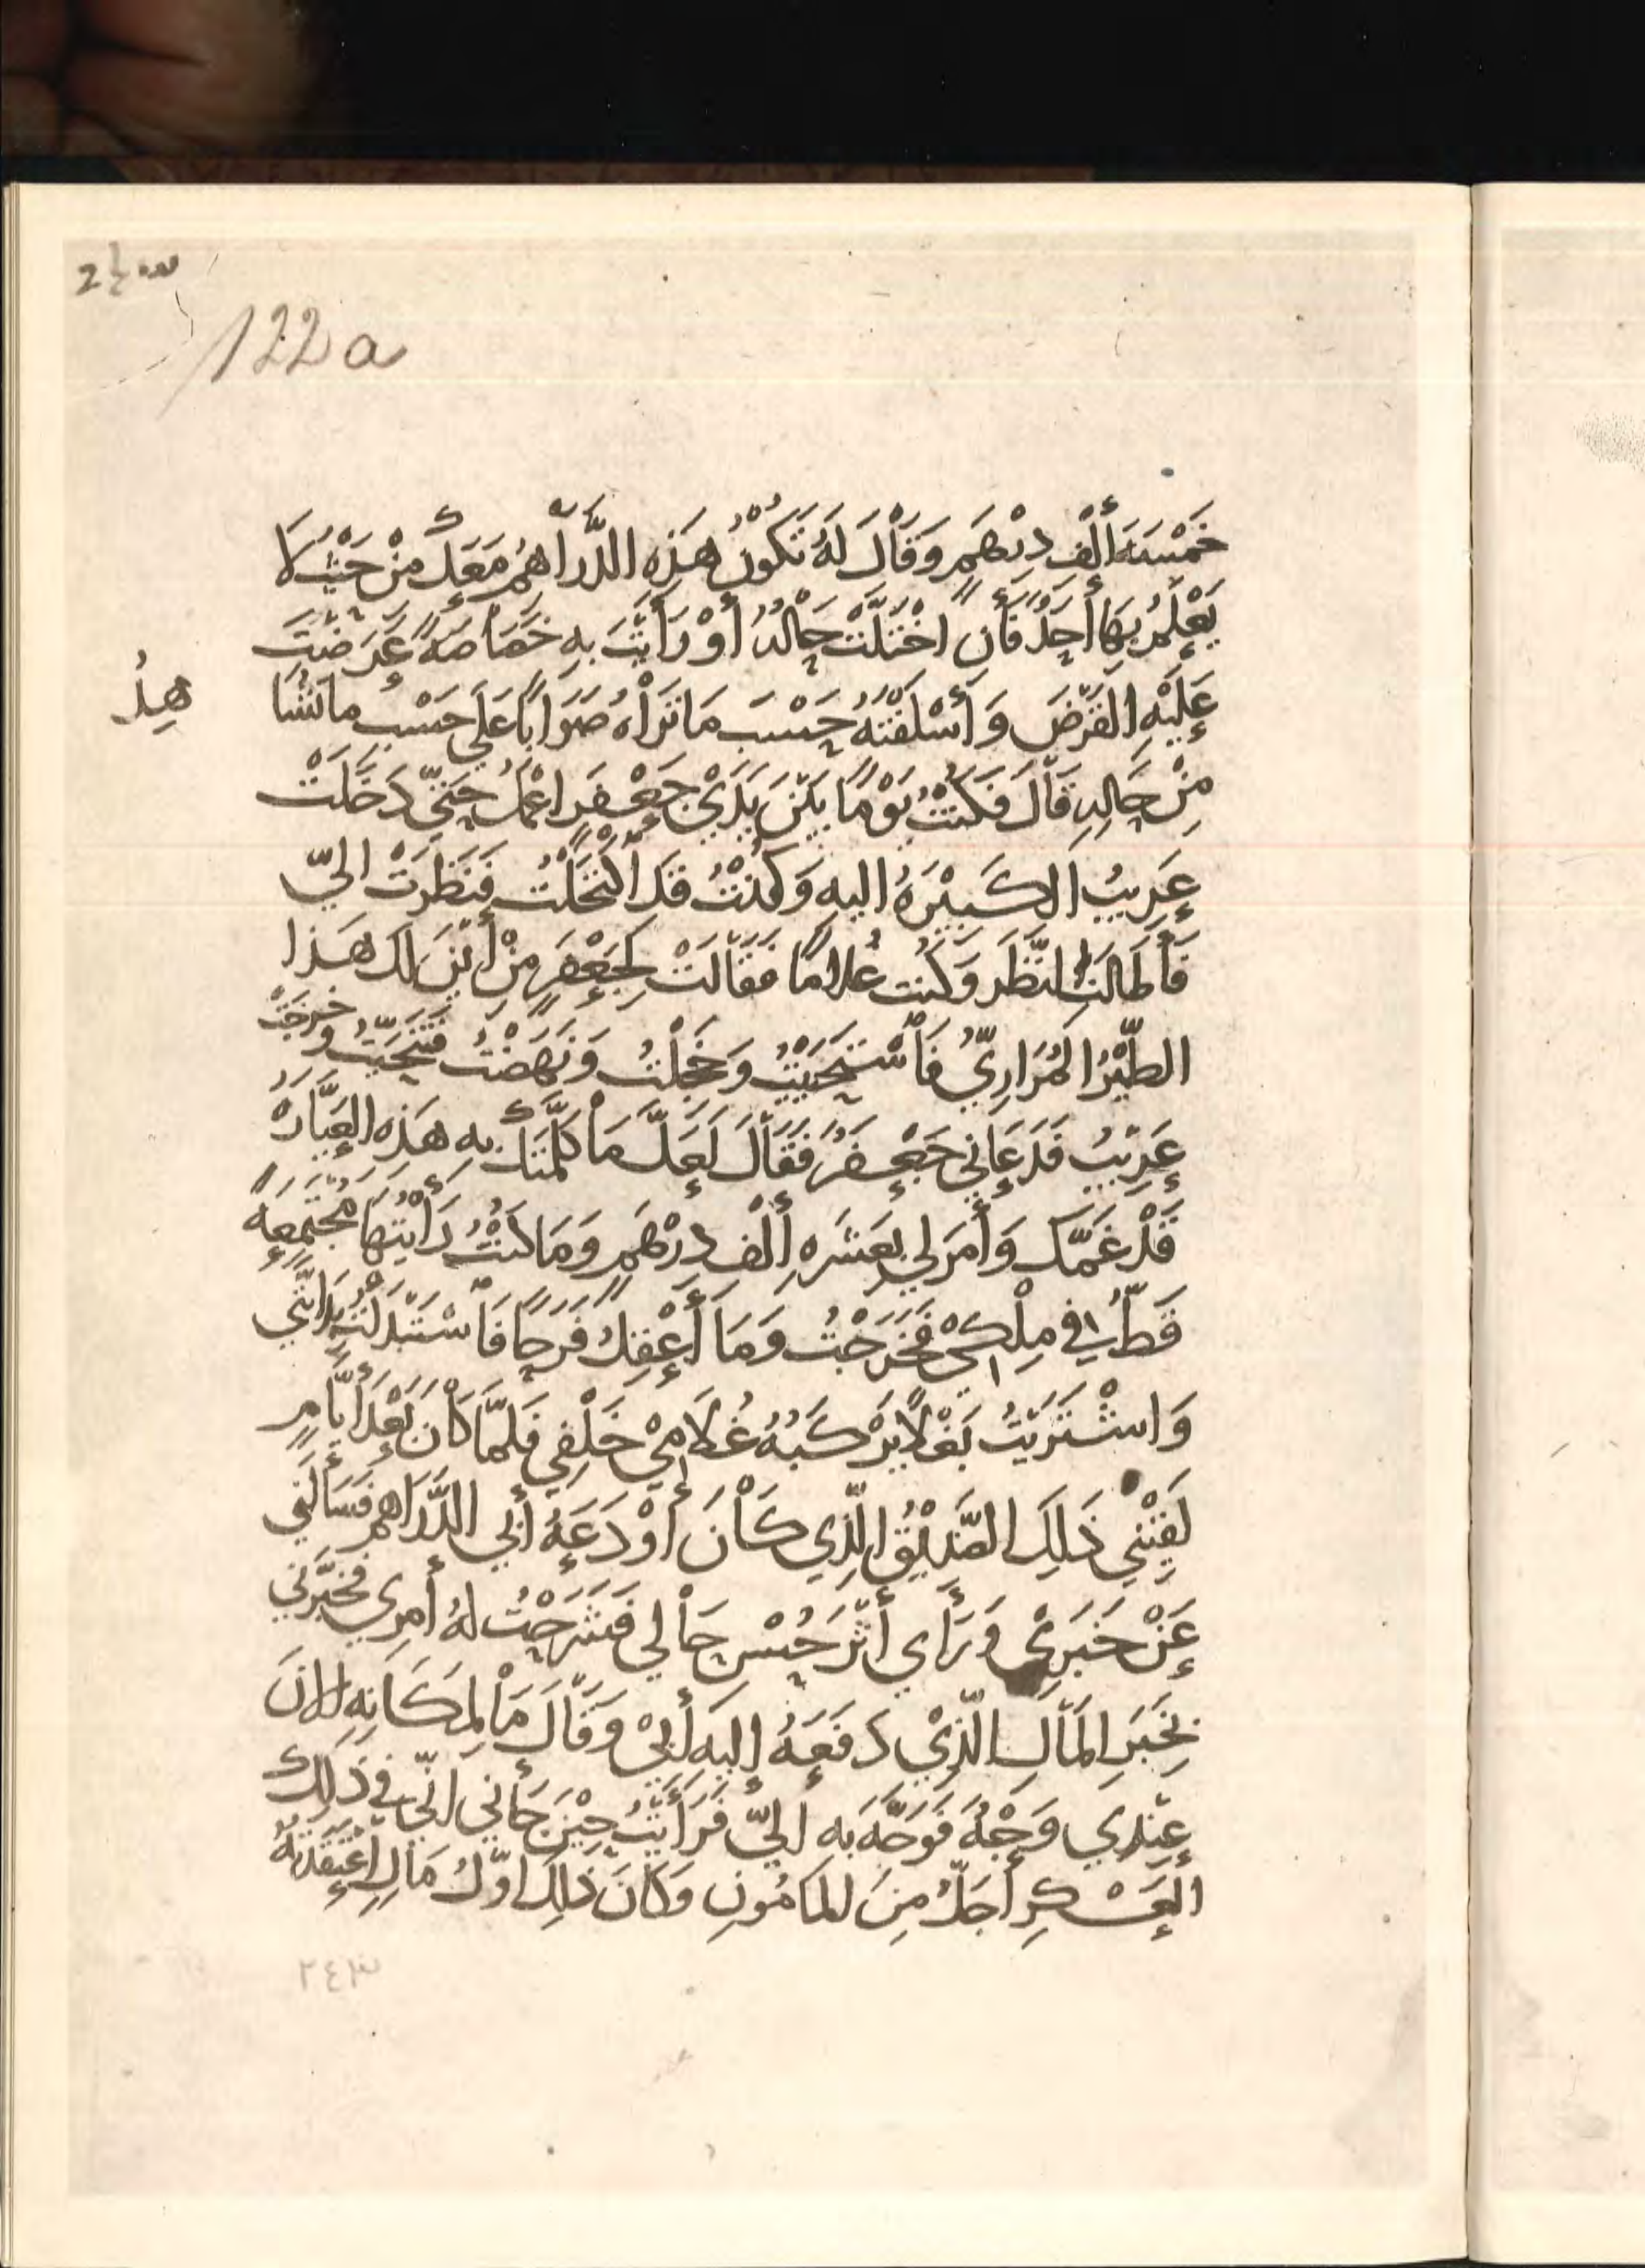 122a
خَمْسَةَ أَلْفِ دِرْهَمٍ وَقَالَ لَهُ تَكُونُ هَذِهِ الدَّرَاهِمُ مَعَكَ مِنْ حَيْثُ لَا
يَعْلَمُ بِهَا أَحَدٌ فَأنِ اخْتَلَّتْ حَالُهُ أَوْ رَأَيْتَ بِهِ خَصَاصَةً عَرَضْتَ
عَلَيْهِ القَرْضَ وَأَسْلَفْتَهُ حَسْبَ مَا تَرَاهُ صَوَاباً عَلَى حَسْبِ ما تَشَا
هِدُ
مِنْ حَالِهِ قَالَ فَكُنْتُ يَوْمًا بَيْنَ يَدَيْ جَعْفَرٍ اعْمَلُ حَتَّى دَخَلَتْ
عَرِيبُ الكَبِيْرَةُ اليهِ وَكُنْتُ قَدِ اكْتَحَلْتُ فَنَظَرَتْ اليَّ
فَأَطَالَتِ النَّظَر وَكُنت غُلامًا فَقَالَتْ لِجَعْفَرٍ مِنْ أَيْنَ لَكَ هَذا
الطَّيْرُ المُرَارِيُّ فَأسْتَحْيَيْتُ وَخَجِلْتُ وَنَهَضْتُ فَتَنَحَّيْتُ وخرجَتْ
عَرِيْبُ فَدَعَانِي جَعْفَرٌ فَقَالَ لَعَلَّ مَا كَلَّمَتْكَ بِهِ هَذِهِ العَيَّارَهُ
قَدْ غَمَّكَ وَأَمَرَ لِي بِعَشَرَهِ أَلْف دِرْهَمٍ وَمَا كُنْتُ رَأَيْتُهَا مُجْتَمِعَةً
قَطُّ فِي مِلْكِيْ فَخَرَجْتُ وَمَا أَعْقِلُ فَرَحًا فَأسْتَبْدَلْتُ بِدَابَّتِي
وَاشْتَرَيْتُ بَغْلًا يَرْكَبُهُ غُلَامِيْ خَلْفِي فَلَمَّا كَانَ بَعْدَ أَيَّامٍ
لَقِيَنِي ذَلِكَ الصَّدِيْقُ الَّذِي كَانَ أَوْدَعَهُ أَبِي الدَّرَاهِمَ فَسَأَلَنِي
عَنْ خَبَرِيْ وَرَأَي أَثَرَ حُسْنِ حَالِي فَشَرَحْتُ لَهُ أَمرِي فخَبَّرَنِي
بِخَبَرِ المَالِ الَّذِيْ دَفَعَهُ إِليهِ أَبِيْ وَقَالَ مَا لِمَكَانِهِ الانَ
عِنْدِي وَجْهُ فَوَجَّهَ بِهِ اليَّ فَرَأَيْتُ حِيْنَ جَأَنِي انِّي في ذَلِكَ
العَسْكَرِ أَجَلُّ مِنَ المَأمُونِ وَكَانَ ذَلِكَ اوَّلُ مَالٍ اعْتَقَدْتُهُ
٢٤٣